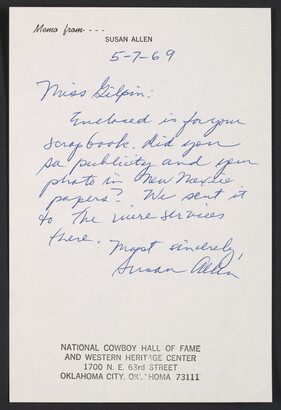 Memo from - - -
SUSAN ALLEN
5-7-69
Miss Gilpin:
Enclosed is for your
scrapbook. Did you
sa publicity and your
photo in New Mexico
papers? We sent it
to the wire services
there.
Most sincerely,
Susan Allen
NATIONAL COWBOY HALL OF FAME
AND WESTERN HERITAGE CENTER
1700 N. E. 63rd STREET
OKLAHOMA CITY, OKLAHOMA 73111